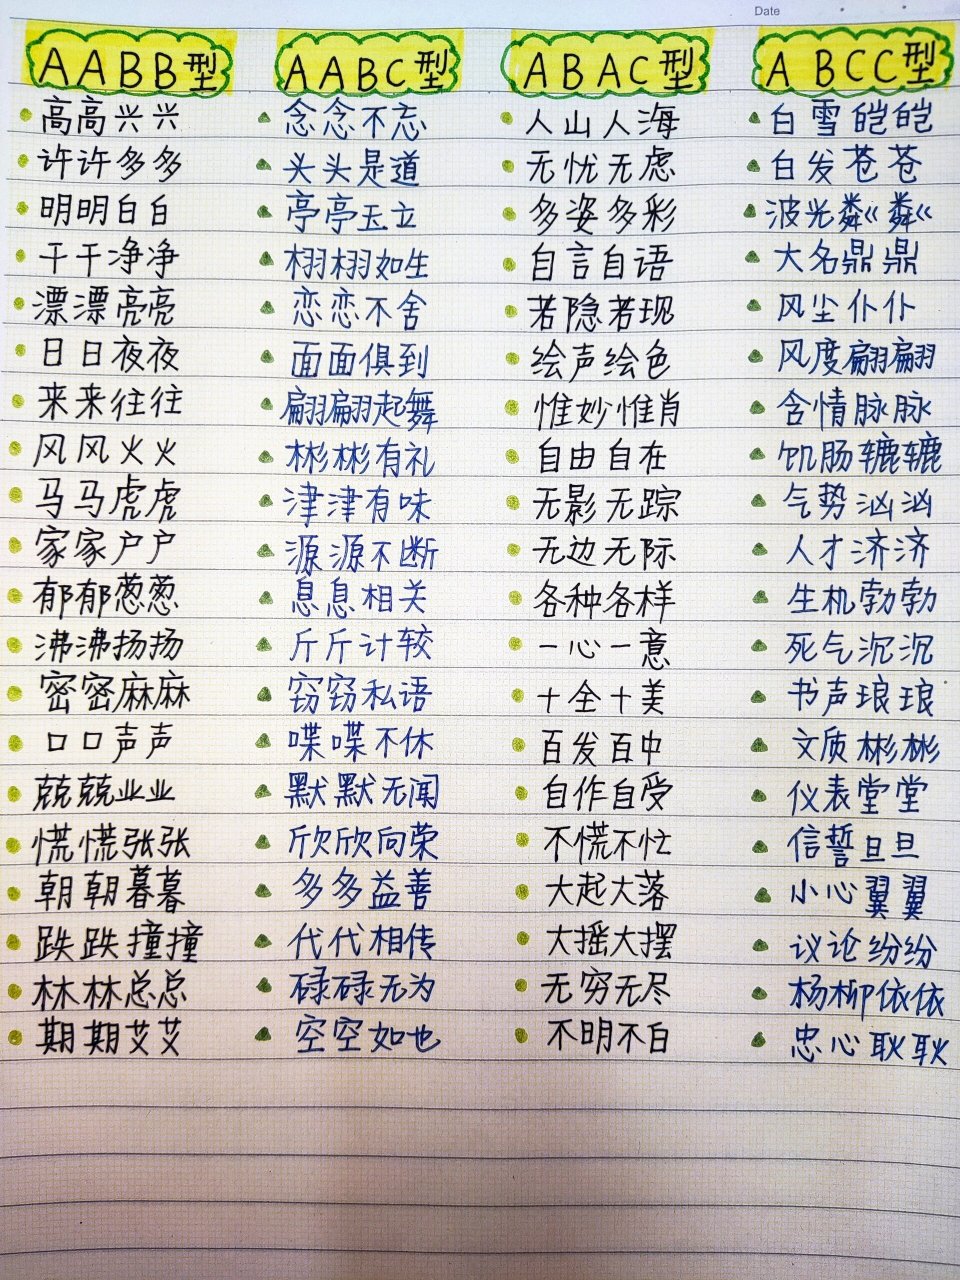 Date
AABB型
高高兴兴
许许多多
明明白白
干干净净
漂漂亮亮
日日夜夜
来来往往
风风火火
马马虎虎
家家户户
郁郁葱葱
沸沸扬扬
密密麻麻
口口声声
兢兢业业
慌慌张张
朝朝暮暮
跌跌撞撞
林林总总
期期艾艾
AABC型
念念不忘
头头是道
亭亭玉立
栩栩如生
恋恋不舍
面面俱到
翩翩起舞
彬彬有礼
津津有味
源源不断
息息相关
斤斤计较
窃窃私语
喋喋不休
默默无闻
欣欣向荣
多多益善
代代相传
碌碌无为
空空如也
ABAC型
人山人海
无忧无虑
多姿多彩
自言自语
若隐若现
绘声绘色
惟妙惟肖
自由自在
无影无踪
无边无际
各种各样
一心一意
十全十美
百发百中
自作自受
不慌不忙
大起大落
大摇大摆
无穷无尽
不明不白
ABCC型
白雪皑皑
白发苍苍
波光粼粼
大名鼎鼎
风尘仆仆
风度翩翩
含情脉脉
饥肠辘辘
气势汹汹
人才济济
生机勃勃
死气沉沉
书声琅琅
文质彬彬
仪表堂堂
信誓旦旦
小心翼翼
议论纷纷
杨柳依依
忠心耿耿